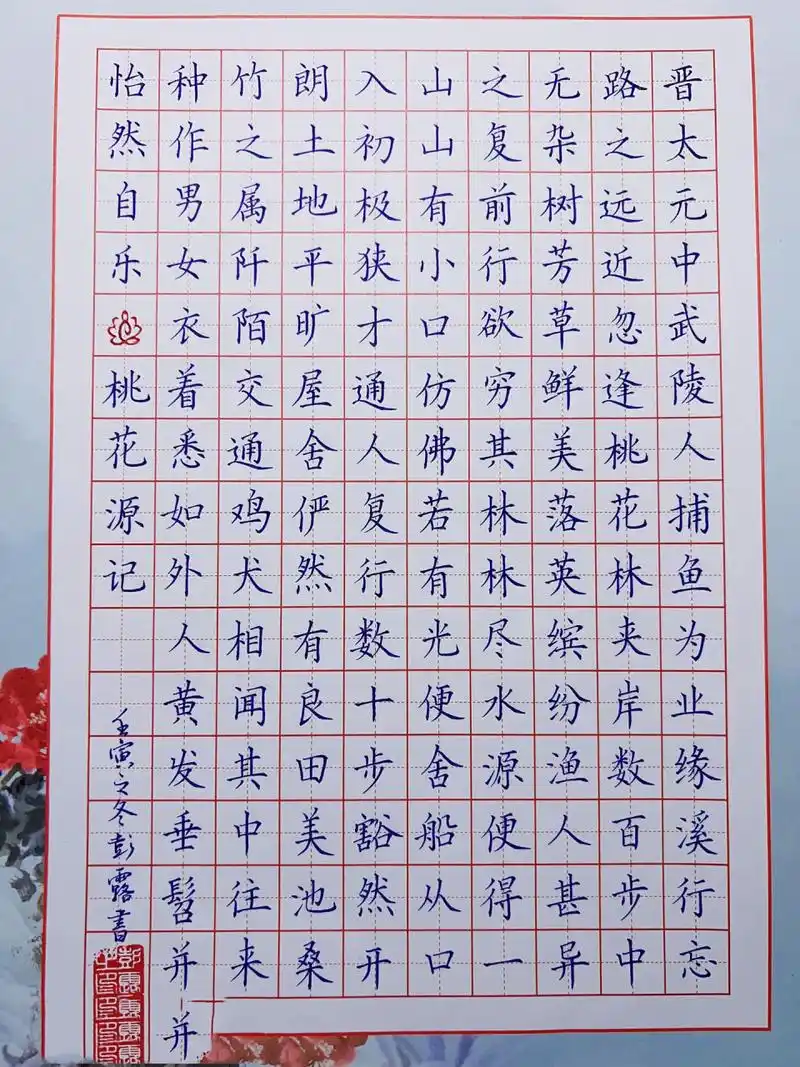 晋太元中武陵人捕鱼为业缘溪行忘
路之远近忽逢桃花林夹岸数百步中
无杂树芳草鲜美落英缤纷渔人甚异
之复前行欲穷其林林尽水源便得一
山山有小口仿佛若有光便舍船从口
入初极狭才通人复行数十步豁然开
朗土地平旷屋舍俨然有良田美池桑
竹之属阡陌交通鸡犬相闻其中往来
种作男女衣着悉如外人黄发垂髫并并
怡然自乐 桃花源记
壬寅之冬彭露书